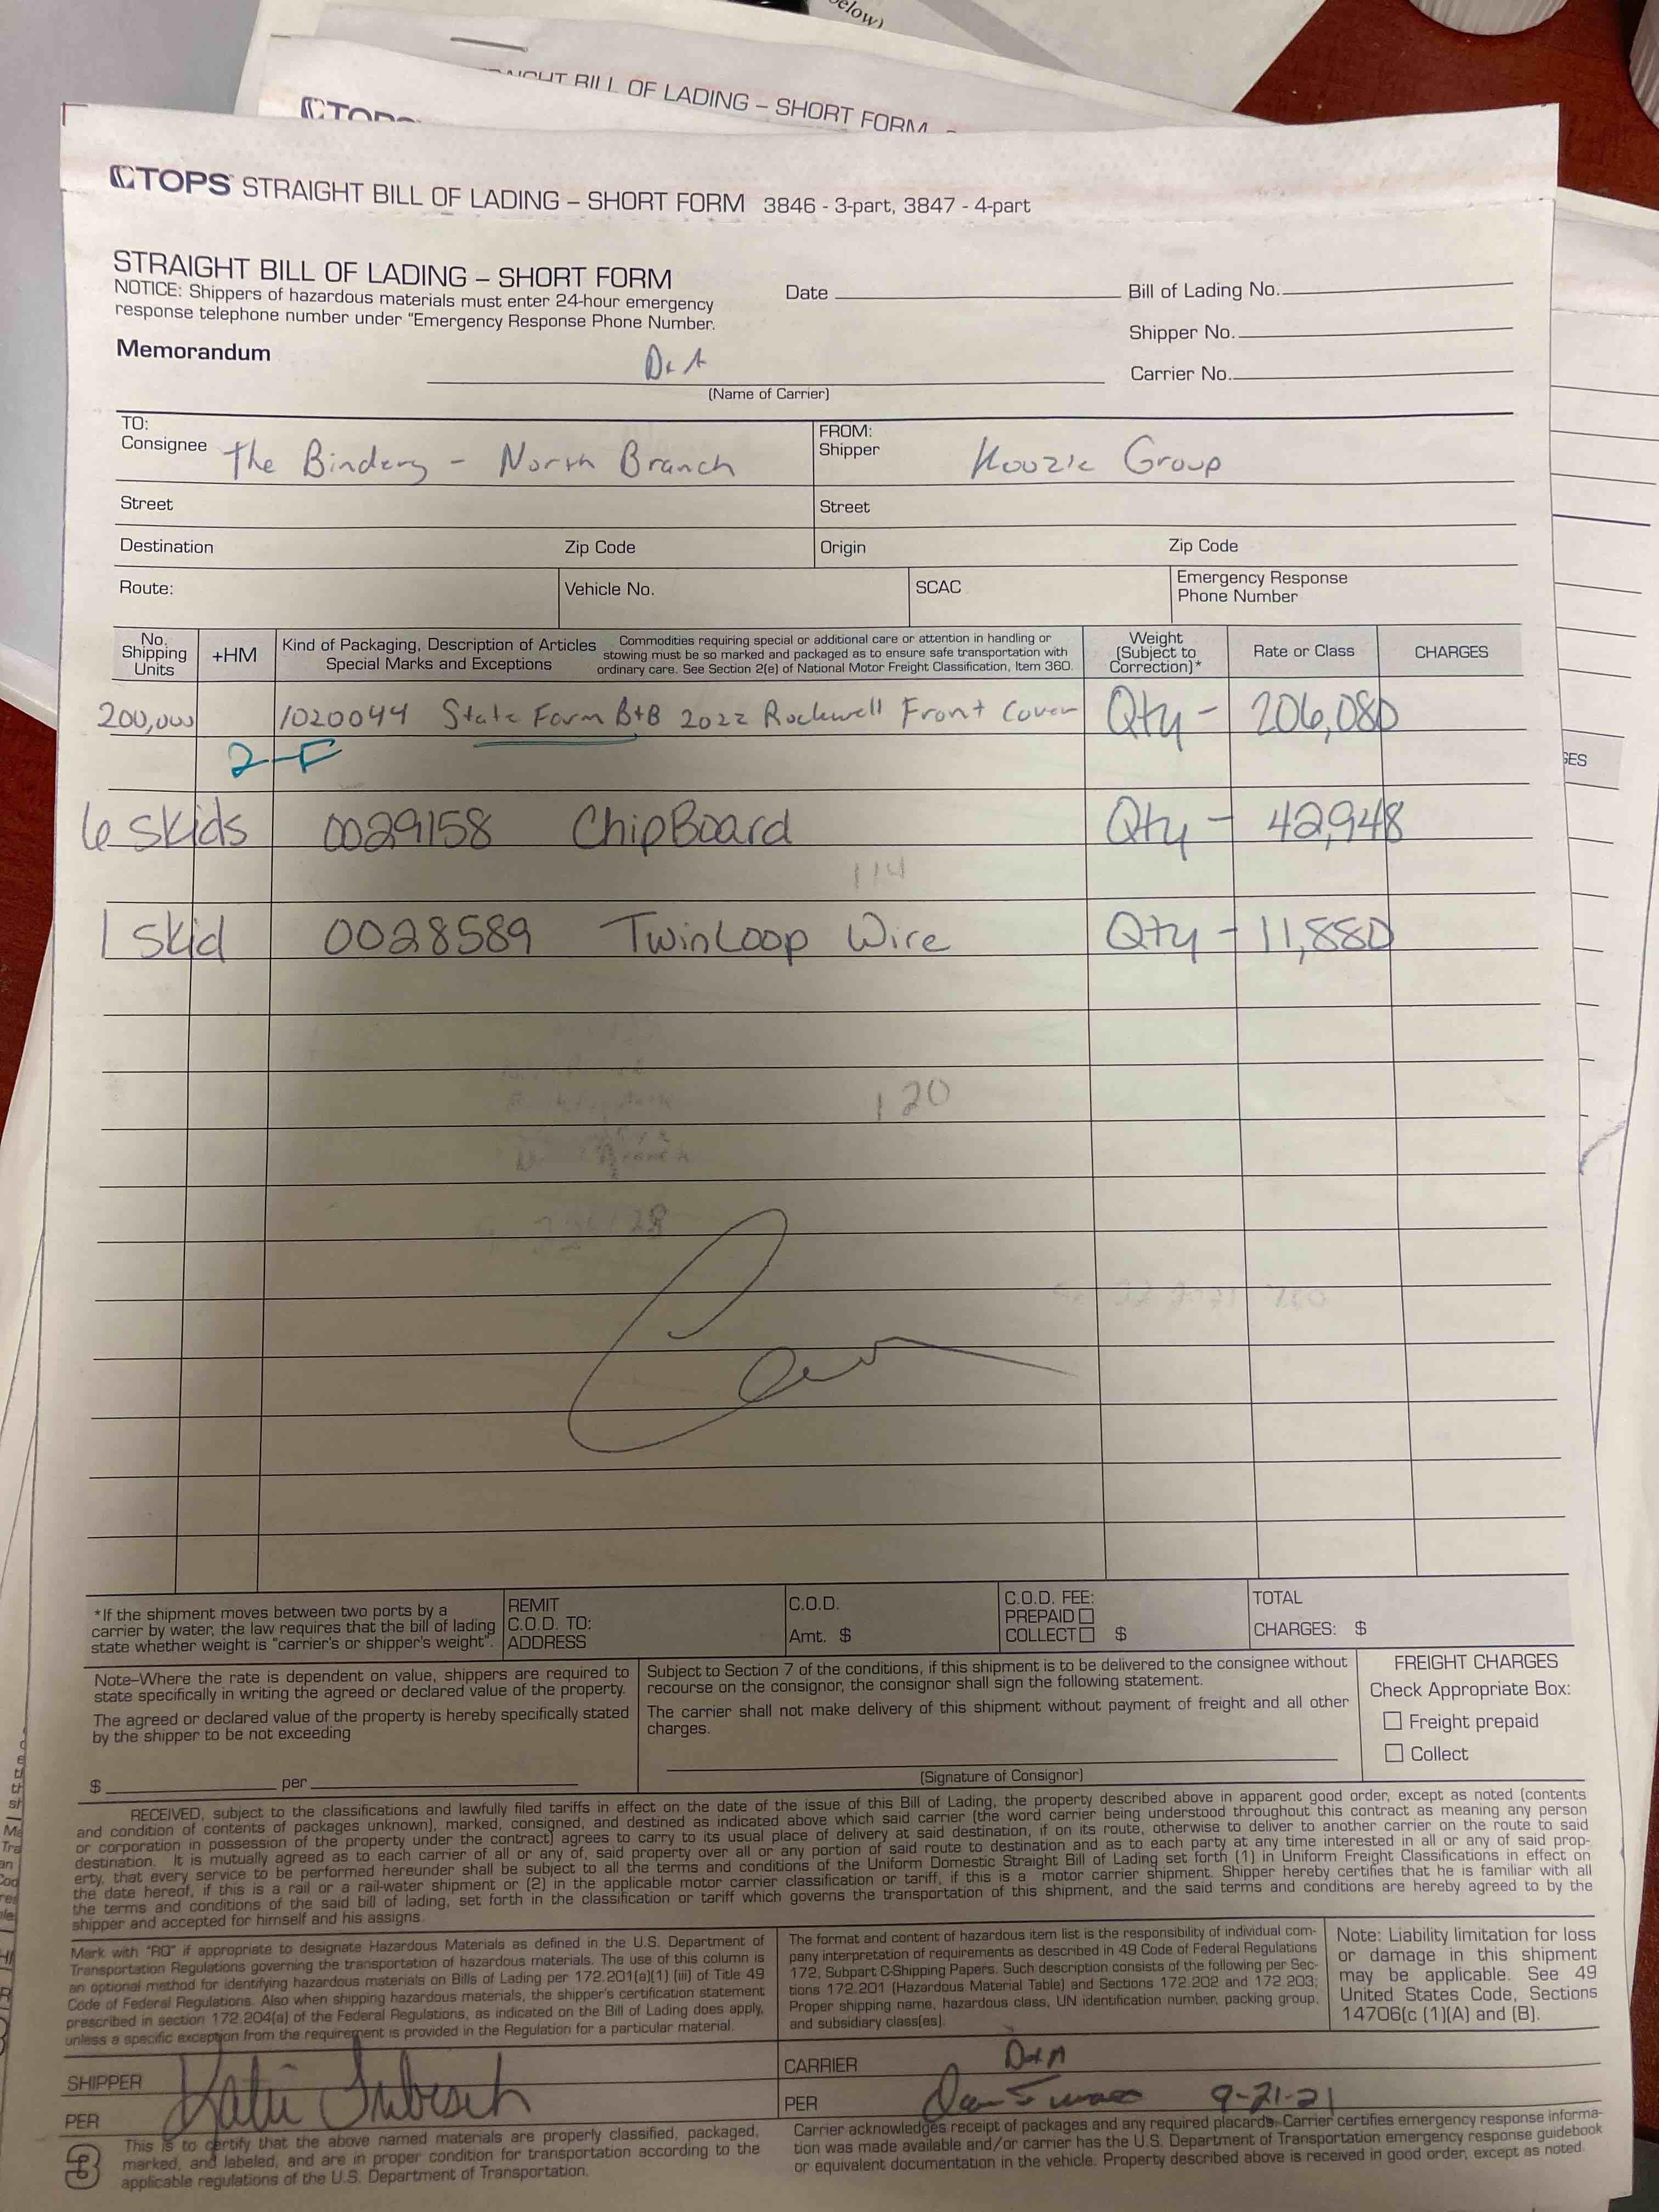 below)
BILL OF LADING – SHORT FORM
TOPS
TOPS STRAIGHT BILL OF LADING – SHORT FORM 3846 - 3-part, 3847 - 4-part
STRAIGHT BILL OF LADING – SHORT FORM
NOTICE: Shippers of hazardous materials must enter 24-hour emergency
response telephone number under "Emergency Response Phone Number.
Date
Bill of Lading No.
Shipper No.
Memorandum
Carrier No.
(Name of Carrier)
TO:
Consignee The Bindery - North Branch
FROM:
Shipper Koozie Group
Street
Street
Destination Zip Code
Origin Zip Code
Route:
Vehicle No.
SCAC
Emergency Response
Phone Number
No.
Shipping
Units
+HM
Kind of Packaging, Description of Articles
Special Marks and Exceptions
Commodities requiring special or additional care or attention in handling or
stowing must be so marked and packaged as to ensure safe transportation with
ordinary care. See Section 2(e) of National Motor Freight Classification, Item 360.
Weight
(Subject to
Correction)*
Rate or Class
CHARGES
200,000 1020044 State Farm B+B 2022 Rockwell Front Cover Qty - 206,080
2-F
6 skids 0029158 ChipBoard Qty - 42,948
114
1 skid 0028589 TwinLoop Wire Qty - 11,880
120
Branch
*If the shipment moves between two ports by a
carrier by water, the law requires that the bill of lading
state whether weight is "carrier's or shipper's weight".
REMIT
C.O.D. TO:
ADDRESS
C.O.D.
Amt. $
C.O.D. FEE:
PREPAID
COLLECT $
TOTAL
CHARGES: $
Note–Where the rate is dependent on value, shippers are required to
state specifically in writing the agreed or declared value of the property.
The agreed or declared value of the property is hereby specifically stated
by the shipper to be not exceeding
$ per
Subject to Section 7 of the conditions, if this shipment is to be delivered to the consignee without
recourse on the consignor, the consignor shall sign the following statement.
The carrier shall not make delivery of this shipment without payment of freight and all other
charges.
(Signature of Consignor)
FREIGHT CHARGES
Check Appropriate Box:
Freight prepaid
Collect
RECEIVED, subject to the classifications and lawfully filed tariffs in effect on the date of the issue of this Bill of Lading, the property described above in apparent good order, except as noted (contents
and condition of contents of packages unknown), marked, consigned, and destined as indicated above which said carrier (the word carrier being understood throughout this contract as meaning any person
or corporation in possession of the property under the contract) agrees to carry to its usual place of delivery at said destination, if on its route, otherwise to deliver to another carrier on the route to said
destination. It is mutually agreed as to each carrier of all or any of, said property over all or any portion of said route to destination and as to each party at any time interested in all or any of said prop-
erty, that every service to be performed hereunder shall be subject to all the terms and conditions of the Uniform Domestic Straight Bill of Lading set forth (1) in Uniform Freight Classifications in effect on
the date hereof, if this is a rail or a rail-water shipment or (2) in the applicable motor carrier classification or tariff, if this is a motor carrier shipment. Shipper hereby certifies that he is familiar with all
the terms and conditions of the said bill of lading, set forth in the classification or tariff which governs the transportation of this shipment, and the said terms and conditions are hereby agreed to by the
shipper and accepted for himself and his assigns.
Mark with "RQ" if appropriate to designate Hazardous Materials as defined in the U.S. Department of
Transportation Regulations governing the transportation of hazardous materials. The use of this column is
an optional method for identifying hazardous materials on Bills of Lading per 172.201(a)(1) (iii) of Title 49
Code of Federal Regulations. Also when shipping hazardous materials, the shipper's certification statement
prescribed in section 172.204(a) of the Federal Regulations, as indicated on the Bill of Lading does apply,
unless a specific exception from the requirement is provided in the Regulation for a particular material.
The format and content of hazardous item list is the responsibility of individual com-
pany interpretation of requirements as described in 49 Code of Federal Regulations
172, Subpart C-Shipping Papers. Such description consists of the following per Sec-
tions 172.201 (Hazardous Material Table) and Sections 172.202 and 172.203;
Proper shipping name, hazardous class, UN identification number, packing group,
and subsidiary class(es).
Note: Liability limitation for loss
or damage in this shipment
may be applicable. See 49
United States Code, Sections
14706(c (1)(A) and (B).
SHIPPER
PER Katie
CARRIER
PER 9-21-21
3
This is to certify that the above named materials are properly classified, packaged,
marked, and labeled, and are in proper condition for transportation according to the
applicable regulations of the U.S. Department of Transportation.
Carrier acknowledges receipt of packages and any required placards. Carrier certifies emergency response informa-
tion was made available and/or carrier has the U.S. Department of Transportation emergency response guidebook
or equivalent documentation in the vehicle. Property described above is received in good order, except as noted.